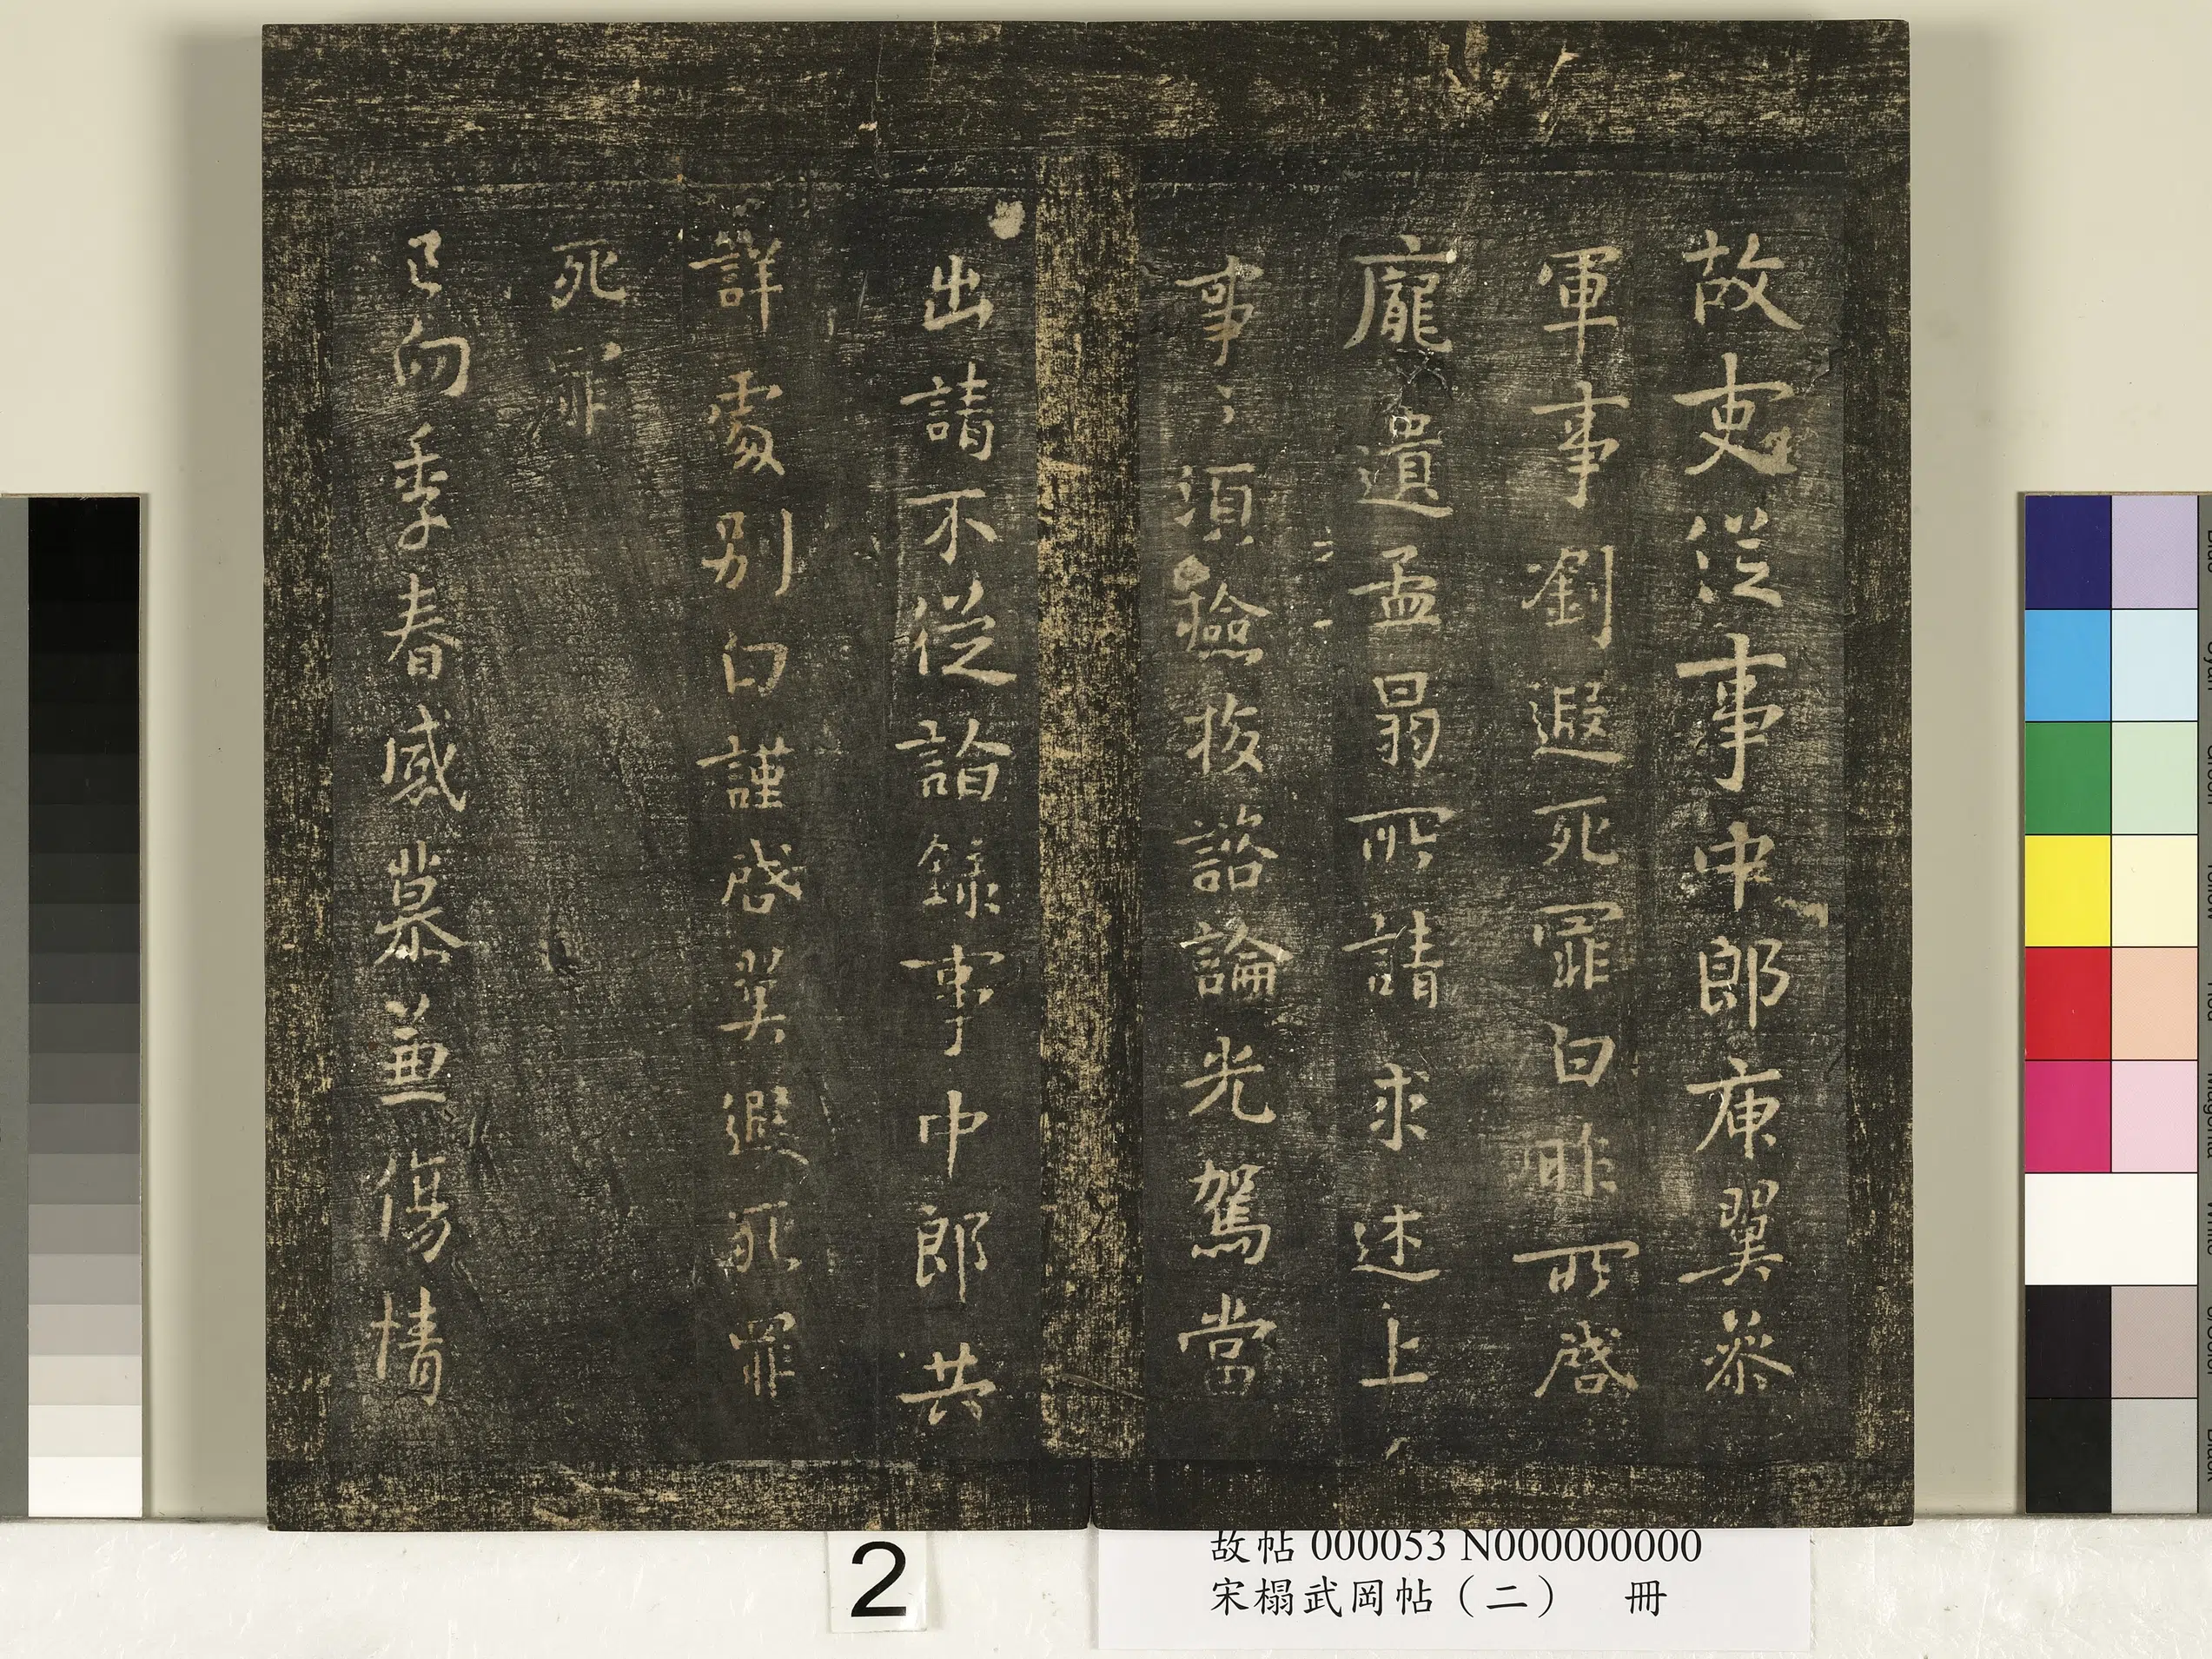 故吏從事中郎庾翼參
軍事劉遐死罪白昨所啓
龐遺孟所請求述上
事〻須撿校諮論光駕當
出請不從詣錄事中郎共
詳處別白謹啓翼遐死罪
死罪
已向季春感慕兼傷情
2
故帖 000053 N000000000
宋榻武岡帖（二） 冊